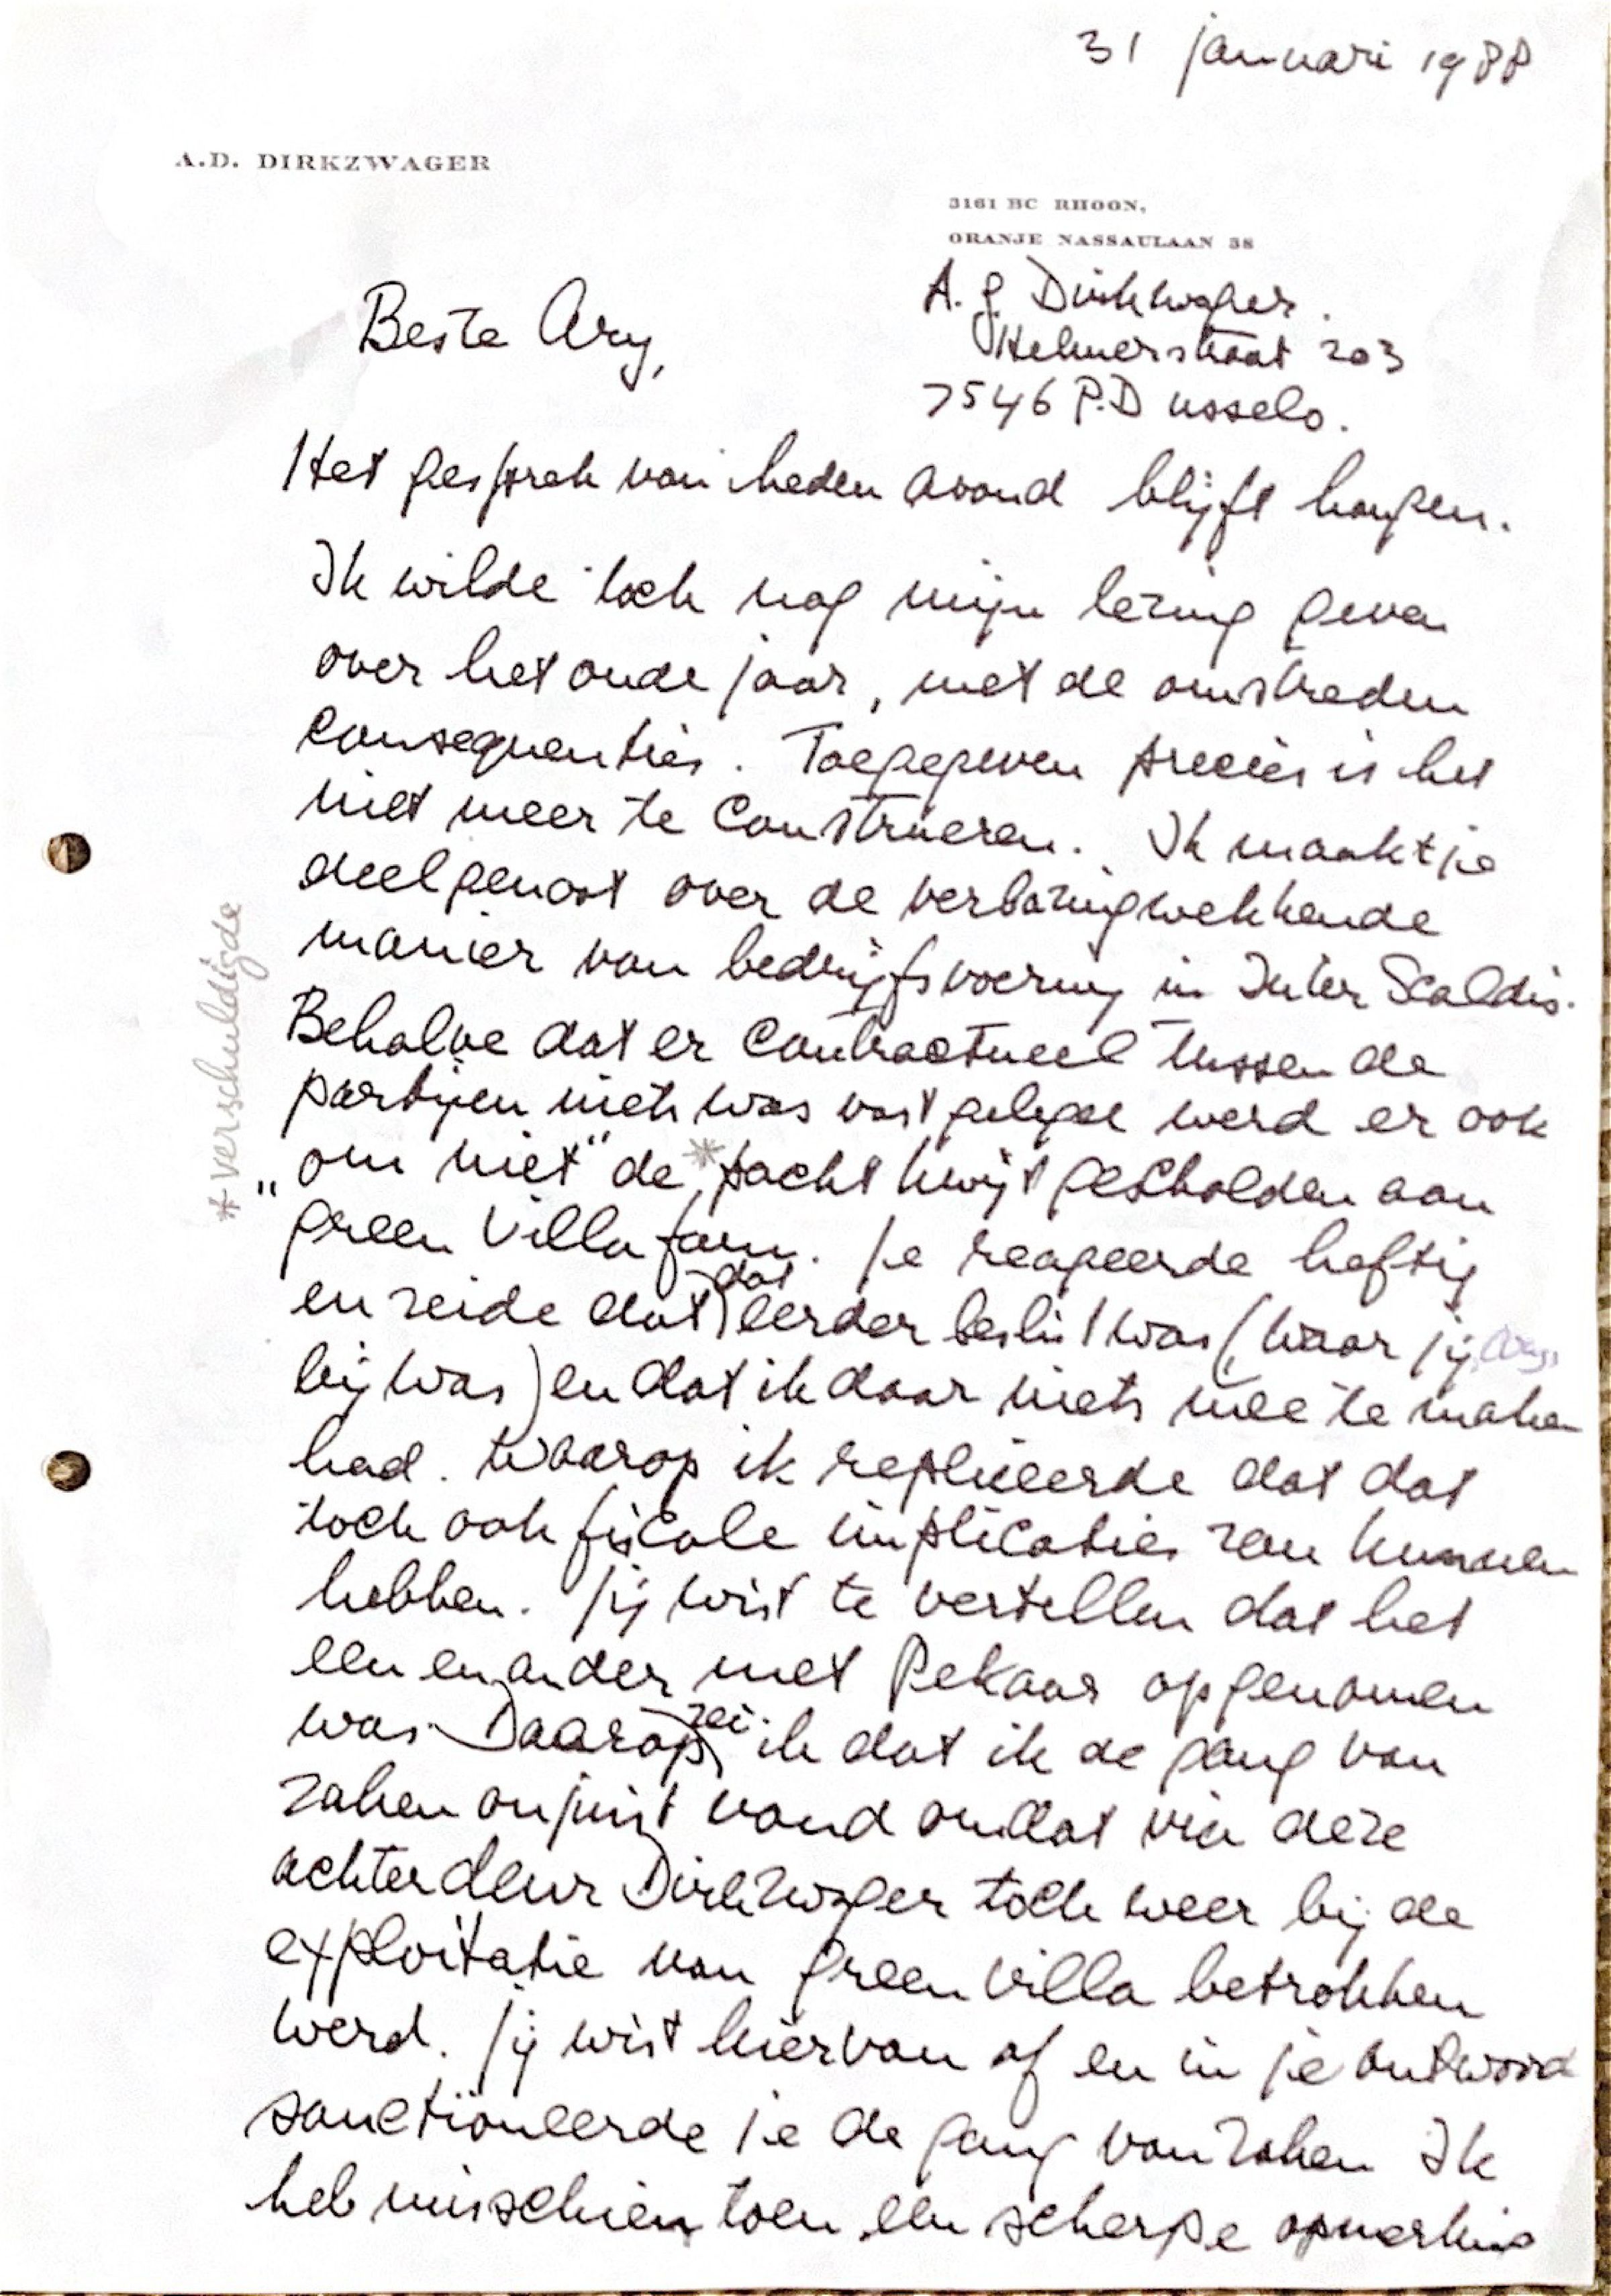 31 januari 1988
A.D. DIRKZWAGER
3161 BC RHOON,
ORANJE NASSAULAAN 38
A. J. Dirkzwager.
Helmerstraat 203
7546 P.D Usselo.
Beste Ary,
Het gesprek van heden avond blijft hangen.
Ik wilde toch nog mijn lezing geven
over het oude jaar, met de omstreden
consequenties. Toegegeven precies is het
niet meer te construeren. Ik maakt je
deelgenoot over de verbazingwekkende
manier van bedrijfsvoering in Inter Scaldis.
Behalve dat er contractueel tussen de
partijen niets was vast gelegd werd er ook
"om niet" de * pacht kwijt gescholden aan
* verschuldigde
green Villa farm. Je reageerde heftig
en zeide dat dat eerder beslist was (waar jij Ary
bij was) en dat ik daar niets mee te maken
had. Waarop ik repliceerde dat dat
toch ook fiscale implicaties zou kunnen
hebben. Jij wist te vertellen dat het
een en ander met Pekaar opgenomen
was. Daarop zei ik dat ik de gang van
zaken onjuist vond omdat via deze
achterdeur Dirkzwager toch weer bij de
exploitatie van green villa betrokken
werd. Jij wist hiervan af en in je antwoord
sanctioneerde je de gang van zaken Ik
heb misschien toen een scherpe opmerking